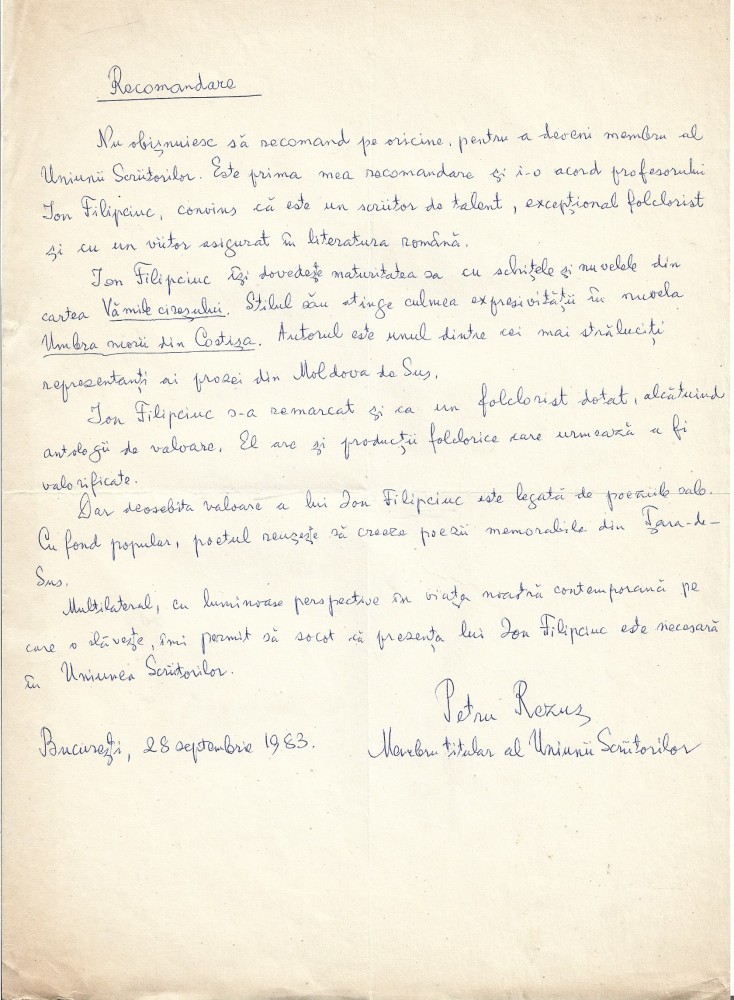 Recomandare
Nu obișnuiesc să recomand pe oricine, pentru a deveni membru al
Uniunii Scriitorilor. Este prima mea recomandare și i-o acord profesorului
Ion Filipciuc, convins că este un scriitor de talent, excepțional folclorist
și cu un viitor asigurat în literatura română.
Ion Filipciuc își dovedește maturitatea sa cu schițele și nuvelele din
cartea Vămile cireșului. Stilul său atinge culmea expresivității în nuvela
Umbra morii din Costișa. Autorul este unul dintre cei mai străluciți
reprezentanți ai prozei din Moldova de Sus.
Ion Filipciuc s-a remarcat și ca un folclorist dotat, alcătuind
antologii de valoare. El are și producții folclorice care urmează a fi
valorificate.
Dar deosebita valoare a lui Ion Filipciuc este legată de poeziile sale.
Cu fond popular, poetul reușește să creeze poezii memorabile din Țara-de-
Sus.
Multilateral, cu luminoase perspective în viața noastră contemporană pe
care o slăvește, îmi permit să socot că prezența lui Ion Filipciuc este necesară
în Uniunea Scriitorilor.
Petru Rezuș
București, 28 septembrie 1983. Membru titular al Uniunii Scriitorilor